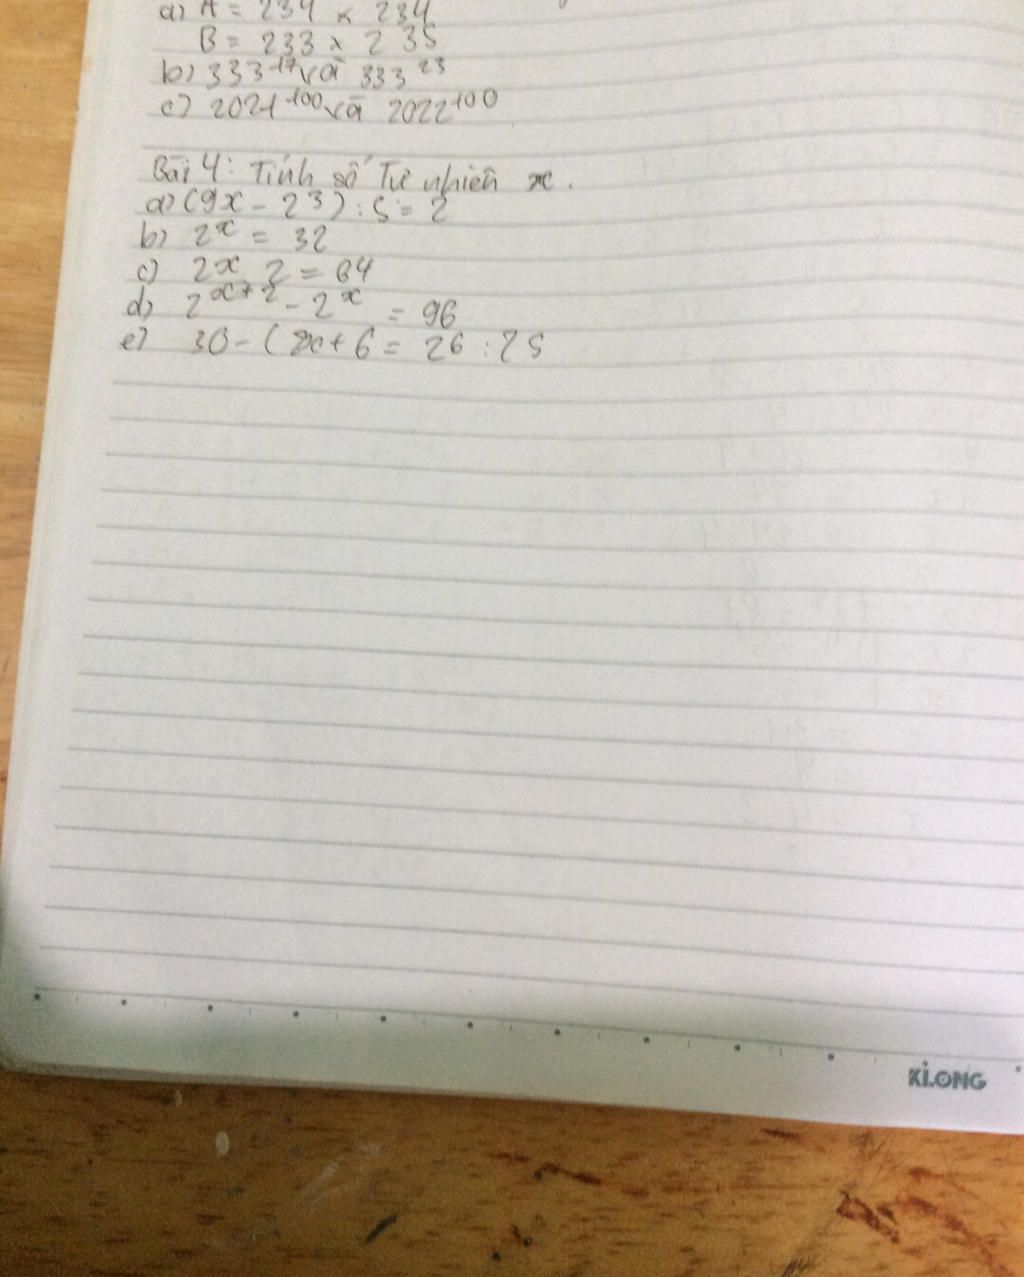 a) A = 234 x 234
B = 233 x 235
b) 333¹⁷ và 333²³
c) 2021¹⁰⁰ và 2022¹⁰⁰
Bài 4: Tính số Tự nhiên x.
a) (9x - 2³) : 5 = 2
b) 2ˣ = 32
c) 2ˣ 2 = 64
d) 2ˣ⁺² - 2ˣ = 96
e) 30 - ( 2x + 6 = 26 : 25
KLONG